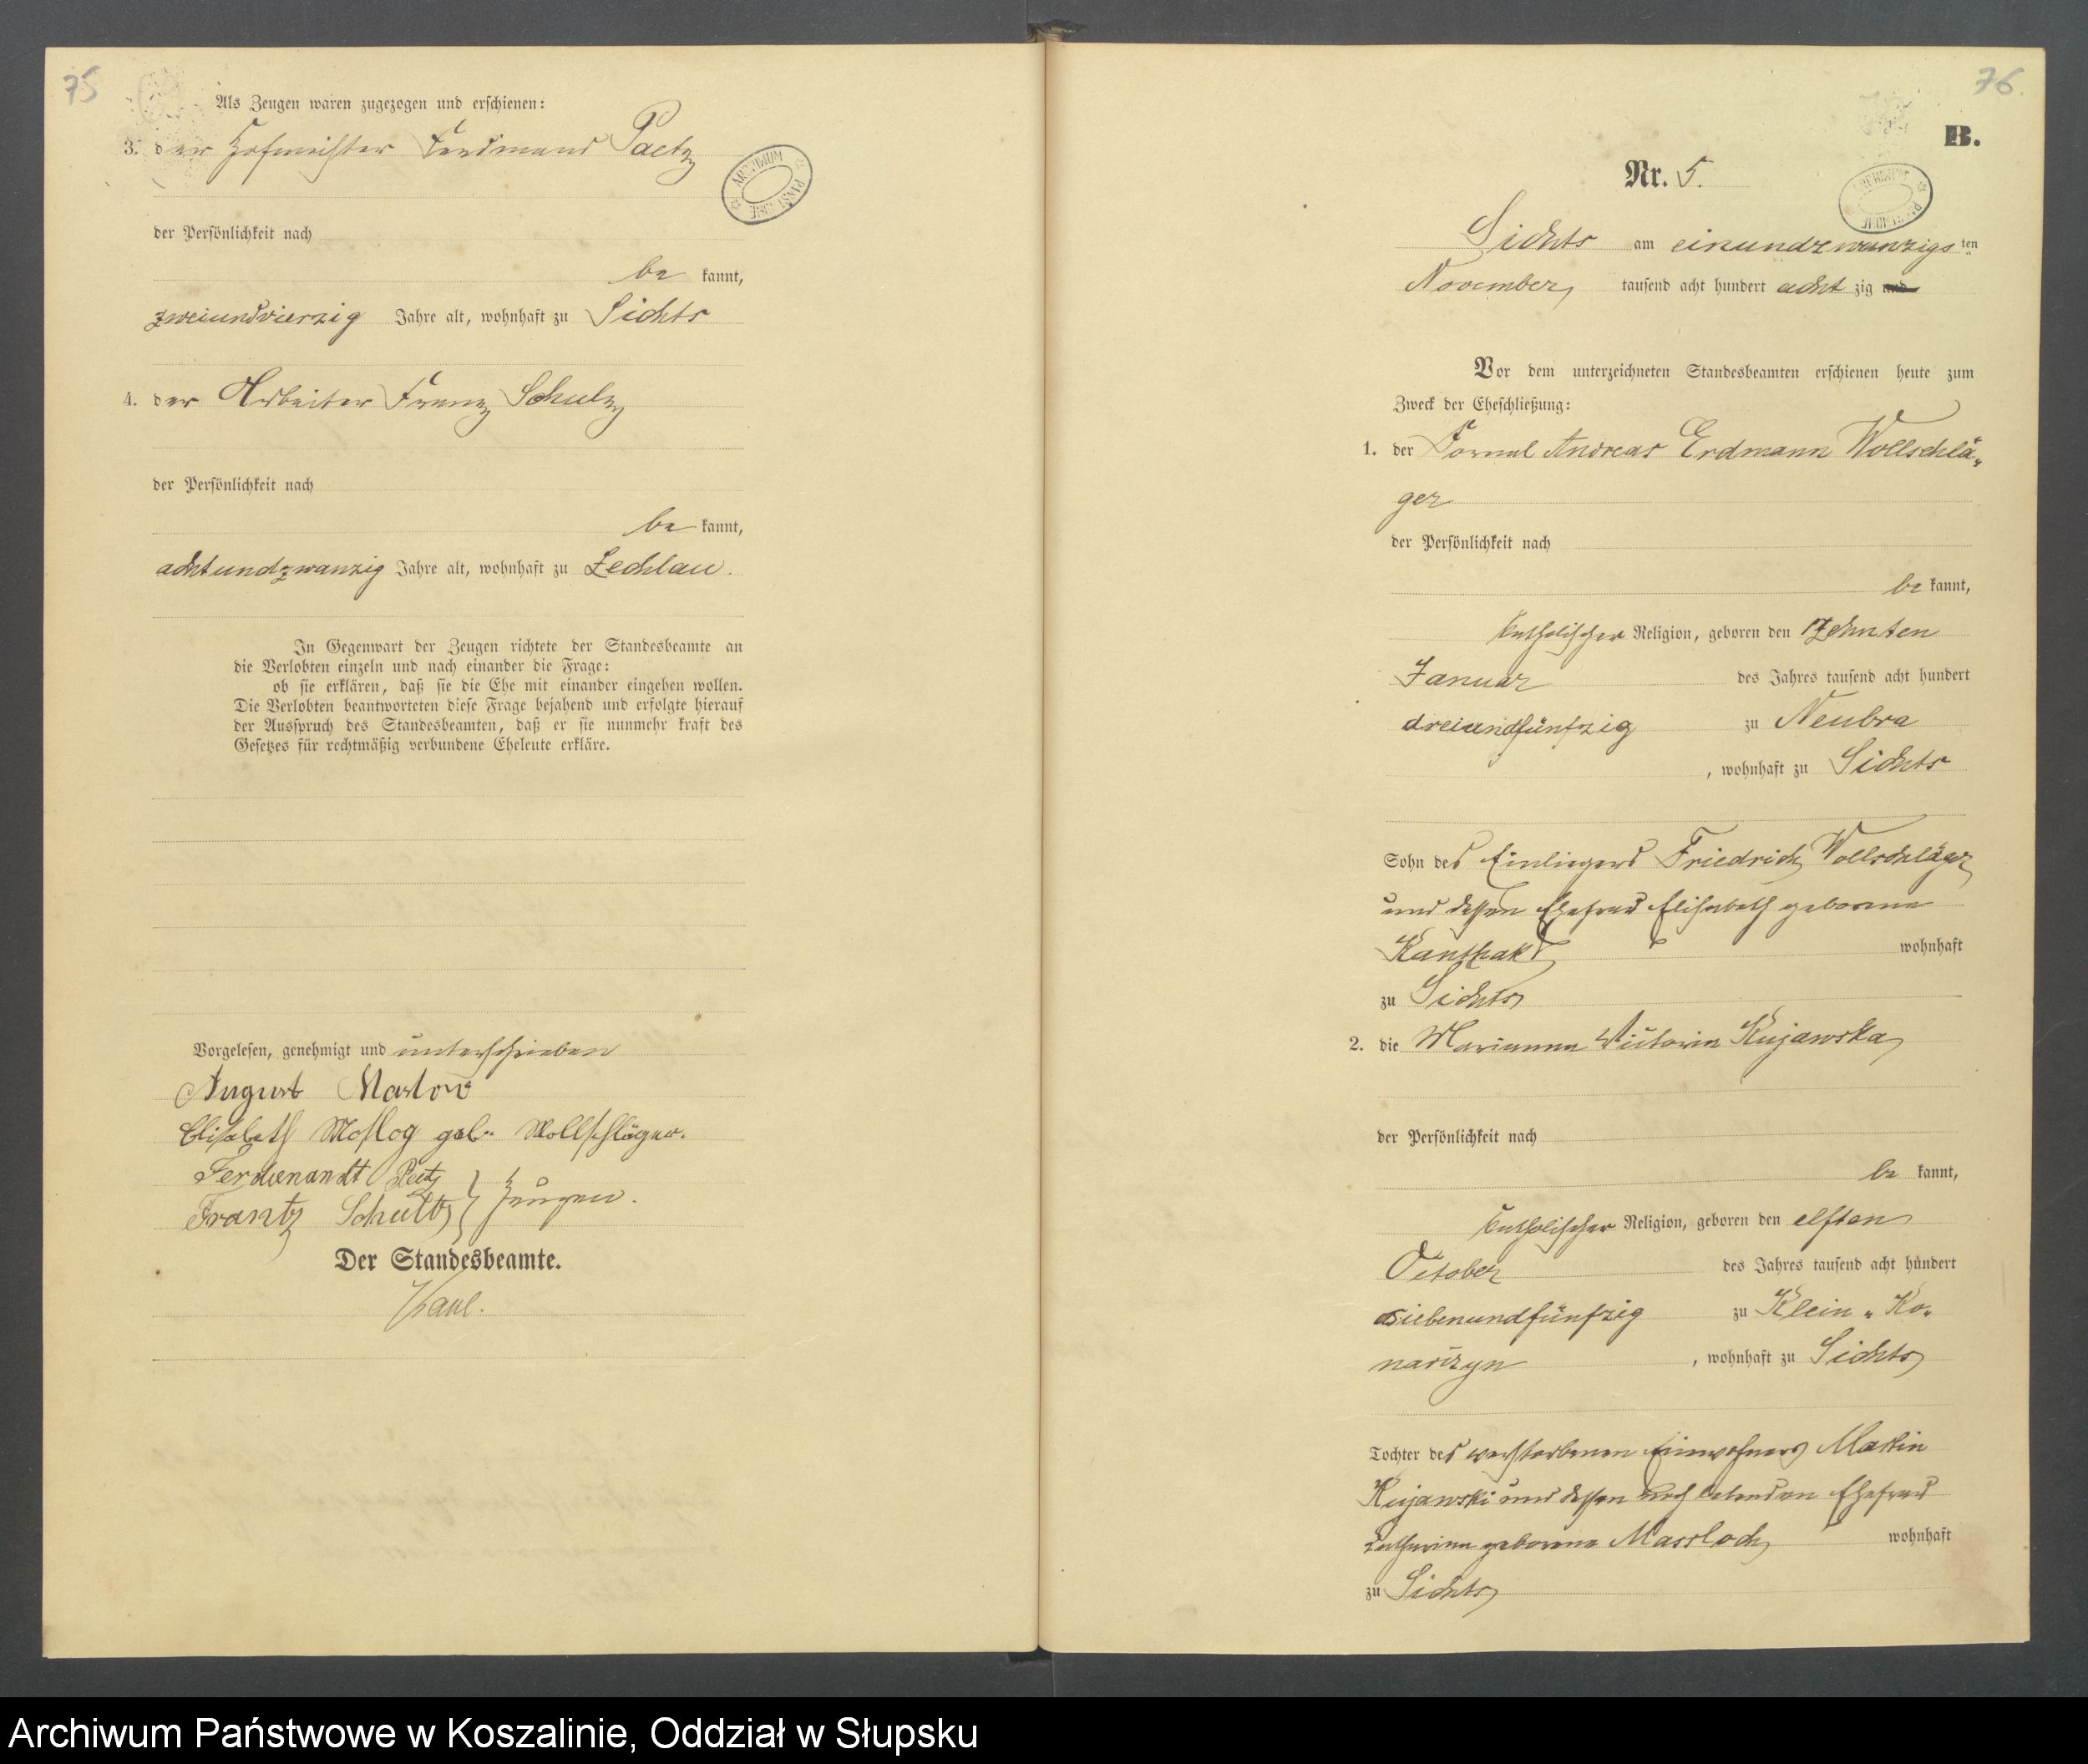 75
Als Zeugen waren zugezogen und erschienen:
3. der Hofmeister Ferdinand Paetz
ARCHIWUM PAŃSTWOWE
der Persönlichkeit nach
be kannt,
zweiundvierzig Jahre alt, wohnhaft zu Sichts
4. der Arbeiter Franz Schulz
der Persönlichkeit nach
be kannt,
achtundzwanzig Jahre alt, wohnhaft zu Zechlau.
In Gegenwart der Zeugen richtete der Standesbeamte an
die Verlobten einzeln und nach einander die Frage:
ob sie erklären, daß sie die Ehe mit einander eingehen wollen.
Die Verlobten beantworteten diese Frage bejahend und erfolgte hierauf
der Ausspruch des Standesbeamten, daß er sie nunmehr kraft des
Gesetzes für rechtmäßig verbundene Eheleute erkläre.
Vorgelesen, genehmigt und unterschrieben
August
Elisabeth geb. Wollschläger.
Ferdienandt Peetz
Frantz Schultz } Zeugen.
Der Standesbeamte.
76.
B.
Nr. 5.
ARCHIWUM PAŃSTWOWE
Sichts am einundzwanzigsten
November tausend acht hundert acht zig und
Vor dem unterzeichneten Standesbeamten erschienen heute zum
Zweck der Eheschließung:
1. der Fornal Andreas Erdmann Wollschlä-
ger
der Persönlichkeit nach
be kannt,
katholischer Religion, geboren den zehnten
Januar des Jahres tausend acht hundert
dreiundfünfzig zu Neubra
, wohnhaft zu Sichts
Sohn des Einliegers Friedrich Wollschläger
und dessen Ehefrau Elisabeth geborene
Kanthak wohnhaft
zu Sichts
2. die Marianna Victoria Kujawska
der Persönlichkeit nach
be kannt,
katholischer Religion, geboren den elften
October des Jahres tausend acht hundert
siebenundfünfzig zu Klein-Ko-
narczyn , wohnhaft zu Sichts
Tochter des verstorbenen Einwohners Martin
Kujawski und dessen noch lebenden Ehefrau
Catharina geborene Massloch wohnhaft
zu Sichts
Archiwum Państwowe w Koszalinie, Oddział w Słupsku